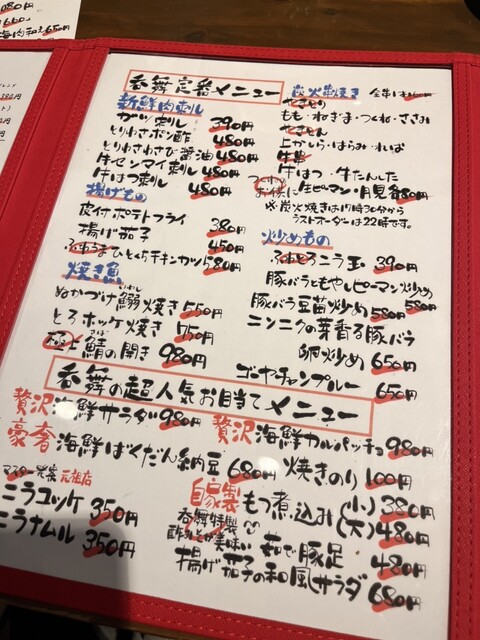 呑舞定番メニュー
新鮮肉刺し
ガツ刺し 390円
とりわさポン酢 480円
とりわさわさび醤油 480円
牛センマイ刺し 480円
牛はつ刺し 480円
揚げもの
皮付ポテトフライ 380円
揚げ茄子 450円
ふわうまひとくちチキンカツ 580円
焼き魚
ぬかづけ鰯焼き 550円
いわし
とろホッケ焼き 750円
さば
極上鯖の開き 980円
炭火串焼き
やきとり
もも・ねぎま・つくね・ささみ
やきとん
上かしら・はらみ・ればー
牛串
牛はつ・牛たんした
つくねのお供に生ピーマン・月見各80円
※炭火焼きは17時30分から
ラストオーダーは22時です。
炒めもの
ふわとろニラ玉 390円
豚バラともやしピーマン炒め 580円
豚バラ豆苗炒め 580円
ニンニクの芽香る豚バラ
卵炒め 650円
ゴーヤチャンプルー 650円
呑舞の超人気お目当てメニュー
贅沢海鮮サラダ 980円
贅沢海鮮カルパッチョ 980円
豪奢海鮮ばくだん納豆 680円
焼きのり 100円
マスター考案 元祖店
ニラユッケ 350円
ニラナムル 350円
自家製もつ煮込み (小) 380円
(大) 480円
呑舞特製
酢みとが美味い 茹で豚足 480円
揚げ茄子の和風サラダ 680円